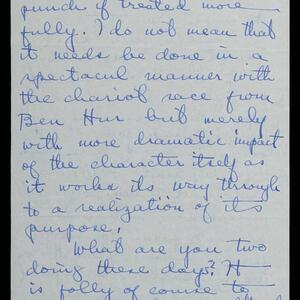 punch if treated more
fully. I do not mean that
it needs be done in a
spectacul manner with
the chariot race from
Ben Hur but merely
with more dramatic impact
of the character itself as
it works its way through
to a realization of its
purpose.
What are you two
doing these days? It
is folly of course to